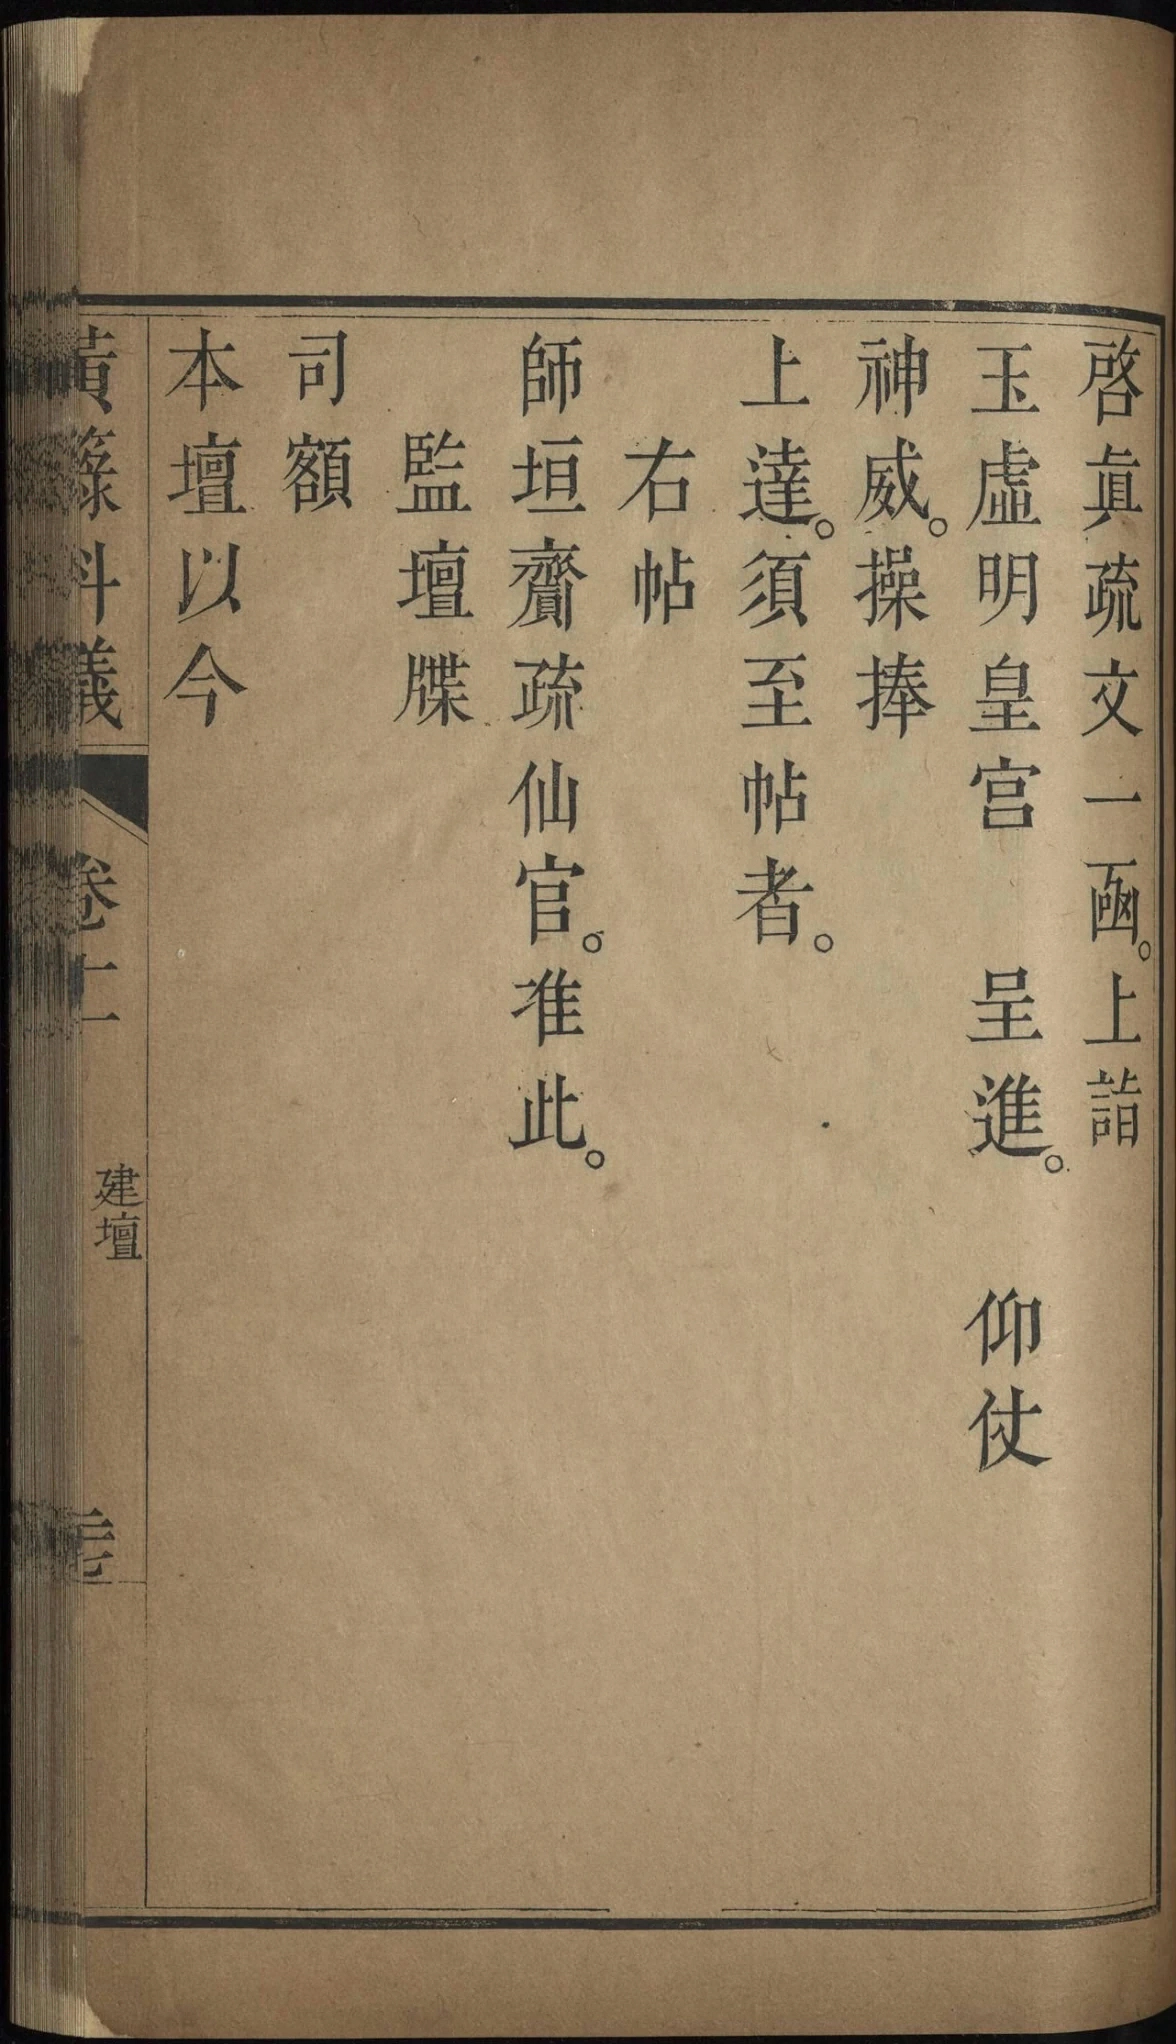 啓眞疏文一凾。上詣
玉虛明皇宮　呈進。　仰仗
神威。操捧
上達。須至帖者。
右帖
師垣齎疏仙官。准此。
監壇牒
司額
本壇以今
黃籙科儀
卷十一
建壇